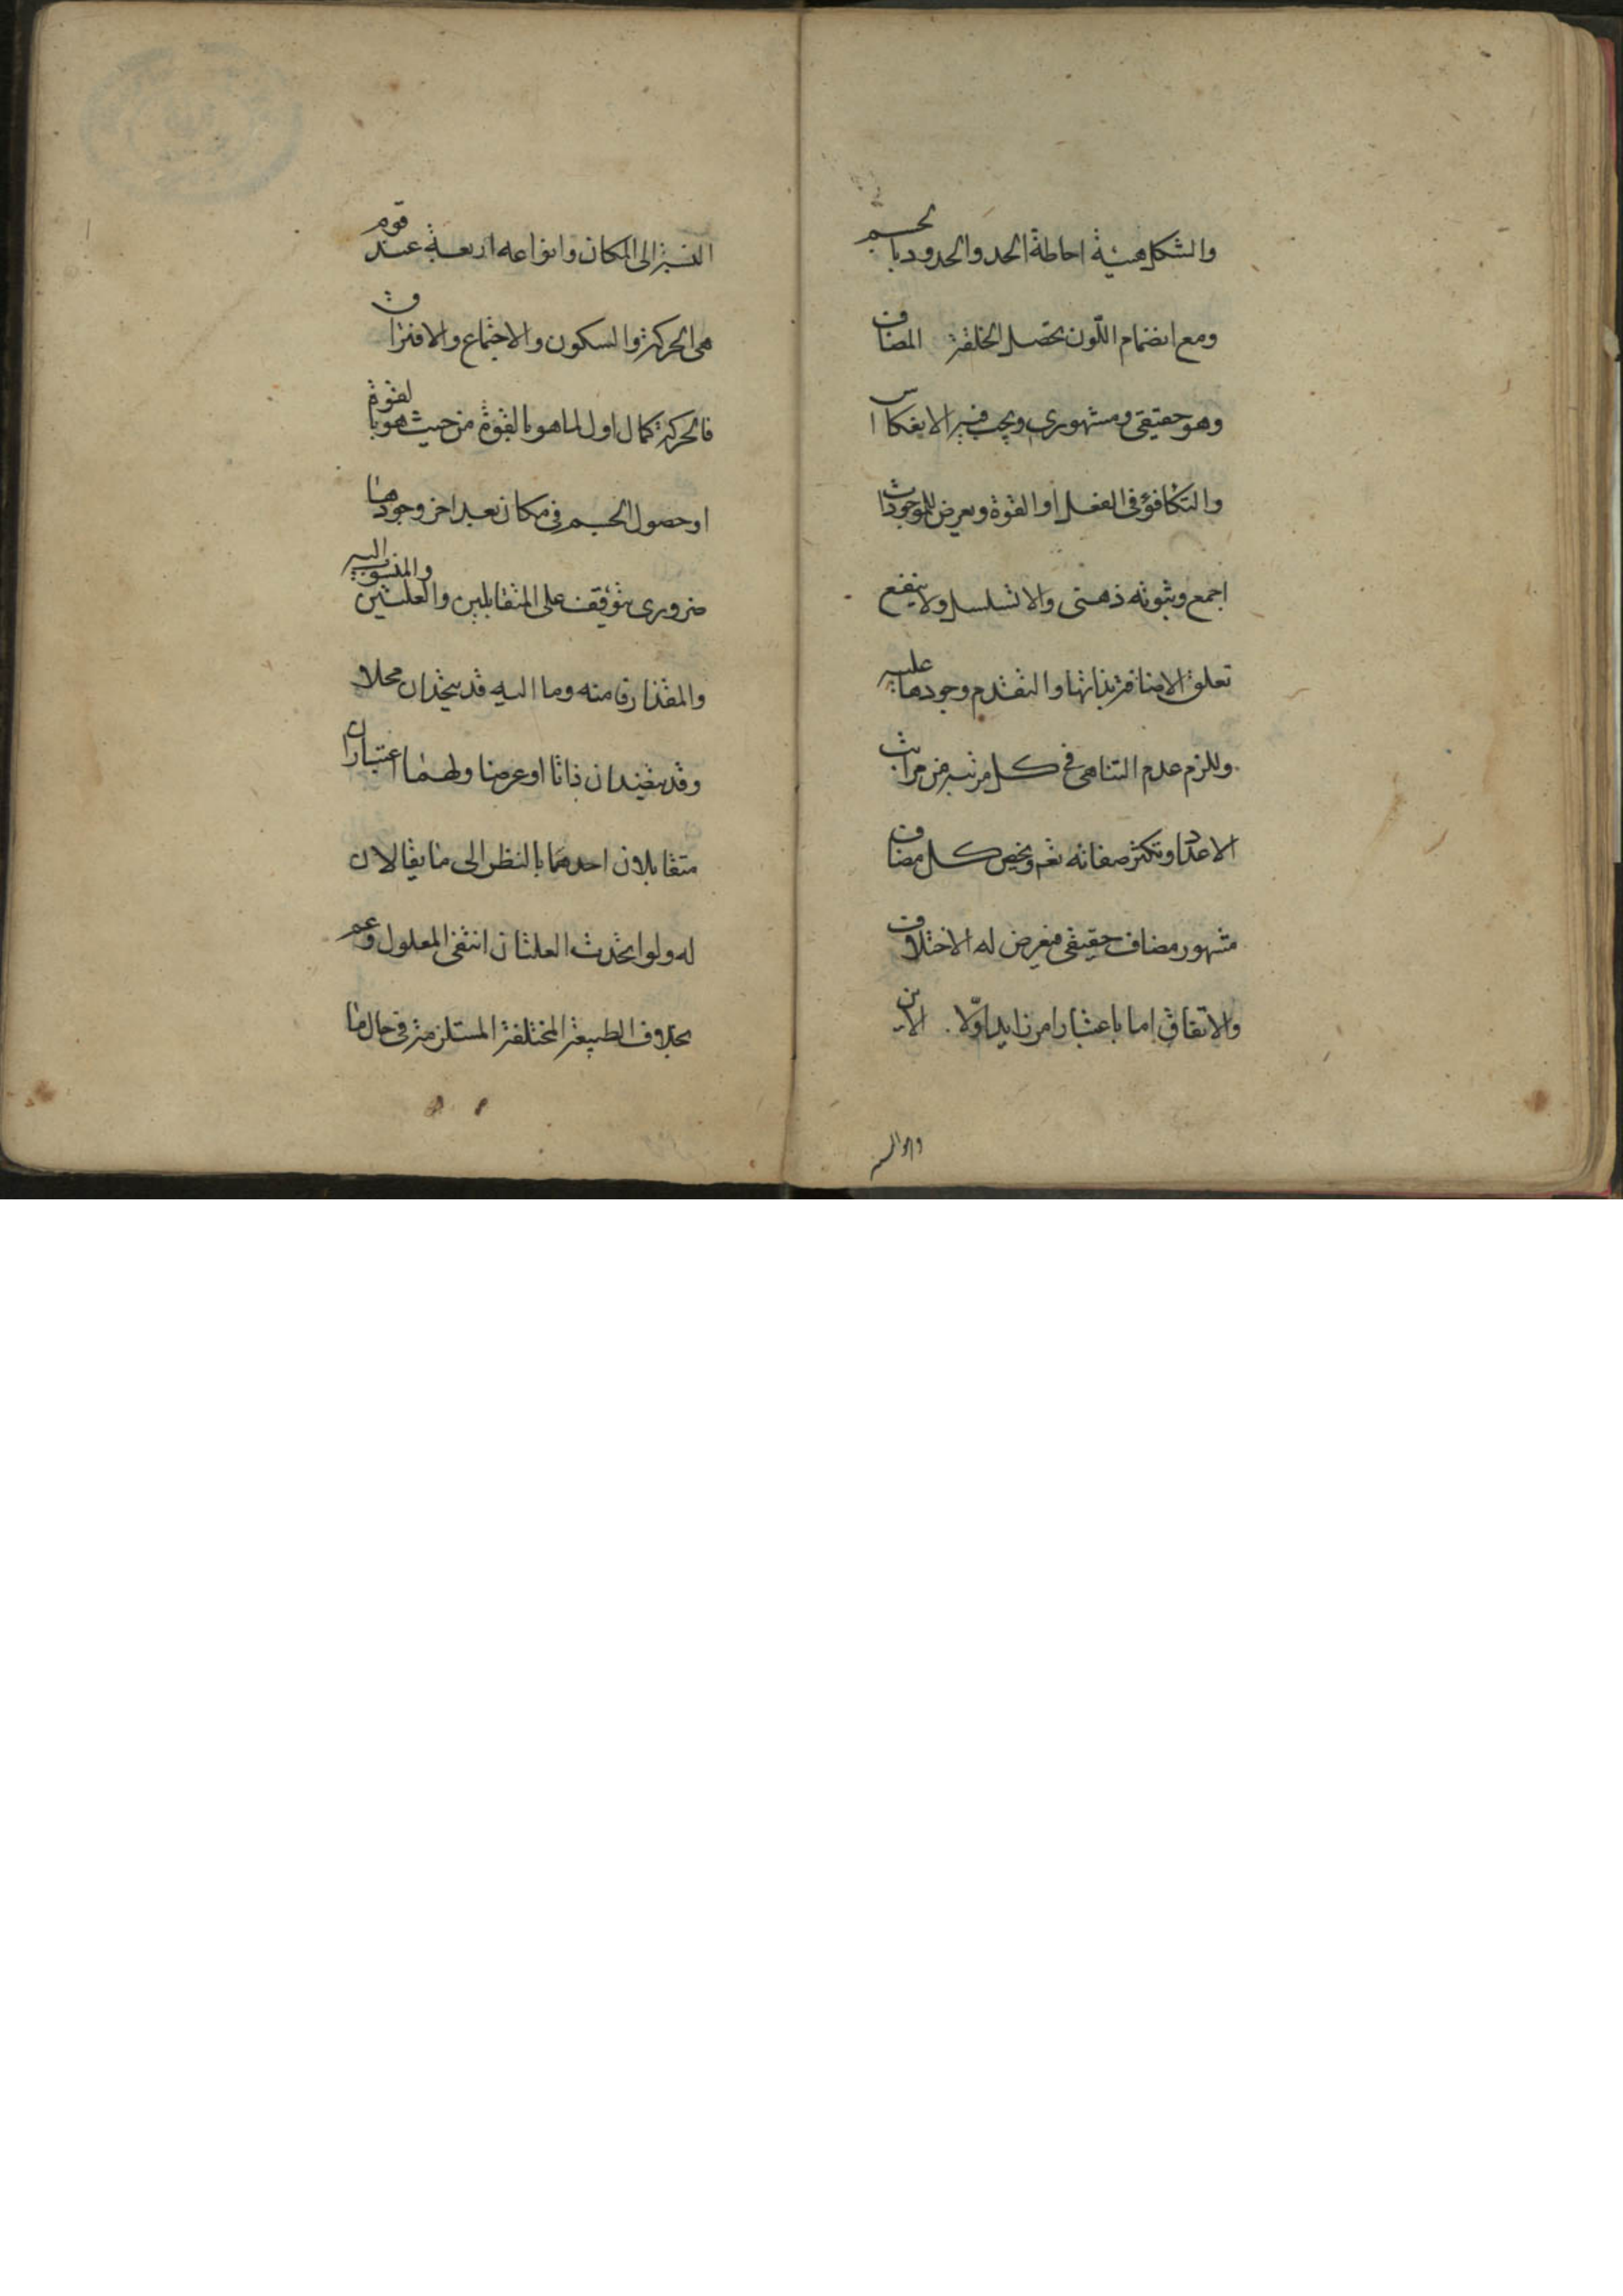 والشكل هيئة احاطة الحد والحدود بالجسم
ومع انضمام اللّون تحصل الخلقة المضاف
وهو حقيقي ومشهوري ويجب فيه الانعكاس
والتكافؤ في الفعل او القوة ويعرض للموجودات
اجمع وثبوته ذهني والا تسلسل ولا ينفع
تعلق الاضافة بذاتها والتقدم وجودها عليه
وللزم عدم التناهي في كل مرتبه من مراتب
الاعداد وتكثر صفاته تعم ويخص كل مضاف
مشهور مضاف حقيقي فيعرض له الاختلاف
والاتفاق اما باعتبار امر زايد او لا الاين
النسبة الى المكان وانواعه اربعة عند قوم
هي الحركة والسكون والاجتماع والافتراق
فالحركة كمال اول لما هو بالقوة من حيث هو بالقوة
او حصول الجسم في مكان بعد اخر ووجودها
ضروري يتوقف على المتقابلين والعلتين والمنسوب اليه
والمقدار فما منه وما اليه قد يتحدان محلا و
وقد يتضادان ذاتا او عرضا ولهما اعتباران
متقابلان احدهما بالنظر الى ما يقالان
له ولو اتحدت العلتان انتفى المعلول وعم
بخلاف الطبيعة المختلفة المستلزمة في حال ما